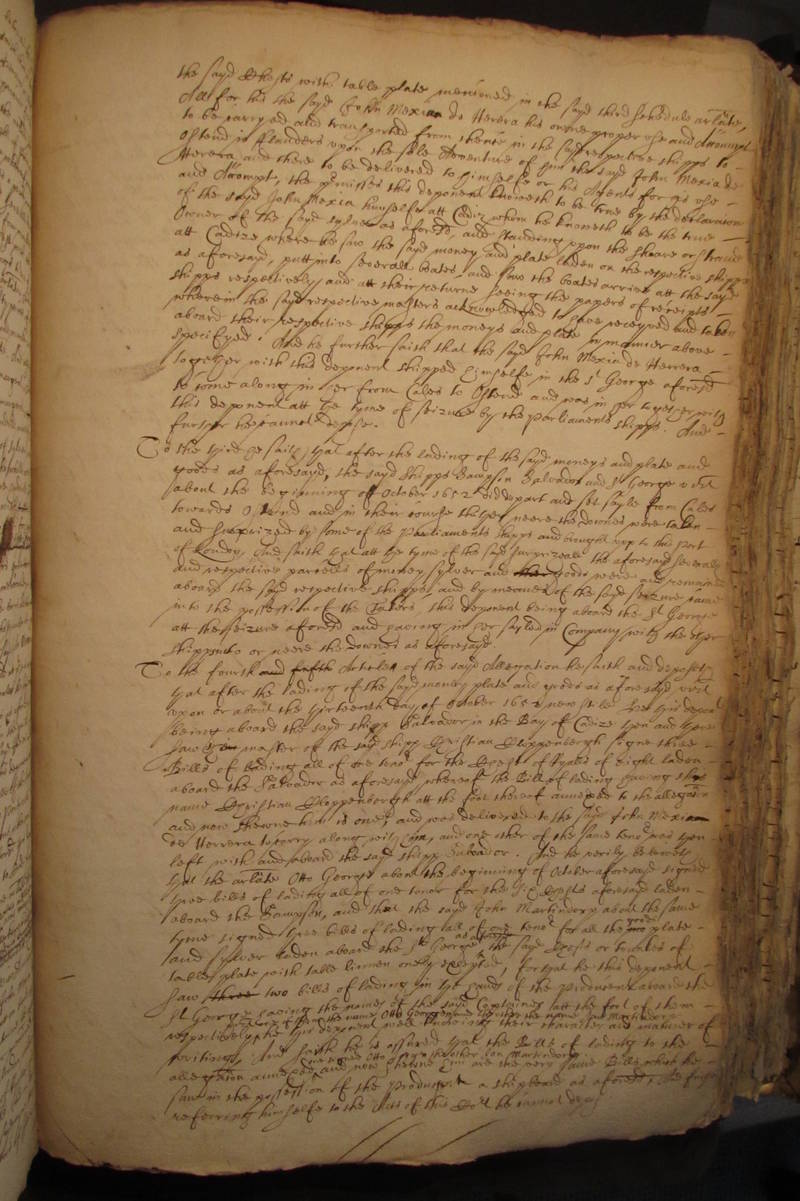 the sayd Chests with table plate menconed in the sayd third schedule arlate,
All for his the sayd John Mexia de Herera his owne proper use and Accompt
to be carryed and transported from thence in the sayd respective shipps to
Ostend in Flanders upon the sole Adventure of him the sayd John Mexia de
Herera and there to be delivered to himselfe or his Agents for his use
and Accompt, the premisses this deponent knoweth to be true by the declaration
of the sayd John Mexia himselfe att Cadiz whom he knoweth to be the true
Owner of the sayd sylver as aforesd, and standing upon the shoare or strand
att Cadize where he saw the sayd money and plate laden on the respective shipps
as aforesayd, putt into severall boates, and saw the boates arrive att the sayd
shipps respectively, and att their returne seeing the papers of receipts
wherein the sayd respective masters acknowledged to have receyved and taken
aboard their respective shipps the moneys and plate in manner above
specifyed. And he further saith that the sayd John Mexia de Herrera
together with this deponent shipped himselfe in the St George aforesd
to come along in her from Cales to Ostend and was in her together with
this deponent att the tyme of seizure by the Parliaments shipps. And
further he cannot depose.
To the third he saith, that after the lading of the sayd moneys and plate and
goods as aforesayd, the sayd shipps Sampson Salvador and St George did
about the beginning of October 1652 did depart and set sayle from Cales
towards Ostend and in their course thither neere the Downes were taken
and surprized by some of the Parliaments shipps and brought upp to this Port
of London, And saith that att the tyme of the sayd surprizeall the aforesayd severall
and respective parcells of money sylver and other goods were and remained
aboard the sayd respective shipps, and by meanes of the sayd seizure came
into the possession of the Takers, this deponent being aboard the St George
att the seizure aforesd and having in her sayled in Company with the other
shipps into or neere the Downes as aforesayd
To the fourth and fifth Articles of the sayd Allegation he saith and deposeth
that after the lading of the sayd money plate and goods as aforesayd vizt
upon or about the thirteenth day of October 1652 new stile hee this deponent
being aboard the sayd shipp Salvador in the Bay of Cadize then and there
saw the master of the sayd shipp Christian Cloppenburgh signe three
Bills of lading all of one tenor for the Chests of Ryalls of Eight laden
aboard the Salvador as aforesayd, whereof the Bill of lading having the
name Christian Cloppenburgh att the foot thereof annexed to the allegation
and now shewne him is one, and was delivered to the sayd John Mexia
de Herrera to carry along with him, and one other of the same tenor was then
left with and aboard the sayd shipp Salvador. And he verily beleeveth
that the arlate Otto George about the beginning of October aforesayd signed
three bills of lading all of one tenor for the Chests aforesayd laden
aboard the Sampson, and that the sayd John Martindorp about the same
tyme signed three bills of lading all of one tenor for all the plate
and sylver laden aboard the St George the sayd Chests or trunkes of
table plate with table linnen onely excepted, for that he this deponent
saw three two bills of lading in the hands of the producent aboard the
St George having the names of the sayd Captaines att the foot of them
respectively, he this deponent well knowing their character and manner of
writing, And saith he is assured that the Bills of lading to the
allegation annexed and now shewne him are the very same Bills which he
saw in the possession of the Producent a shipboard as aforesd, And further
referring himselfe to the Acts of this Court he cannot depose